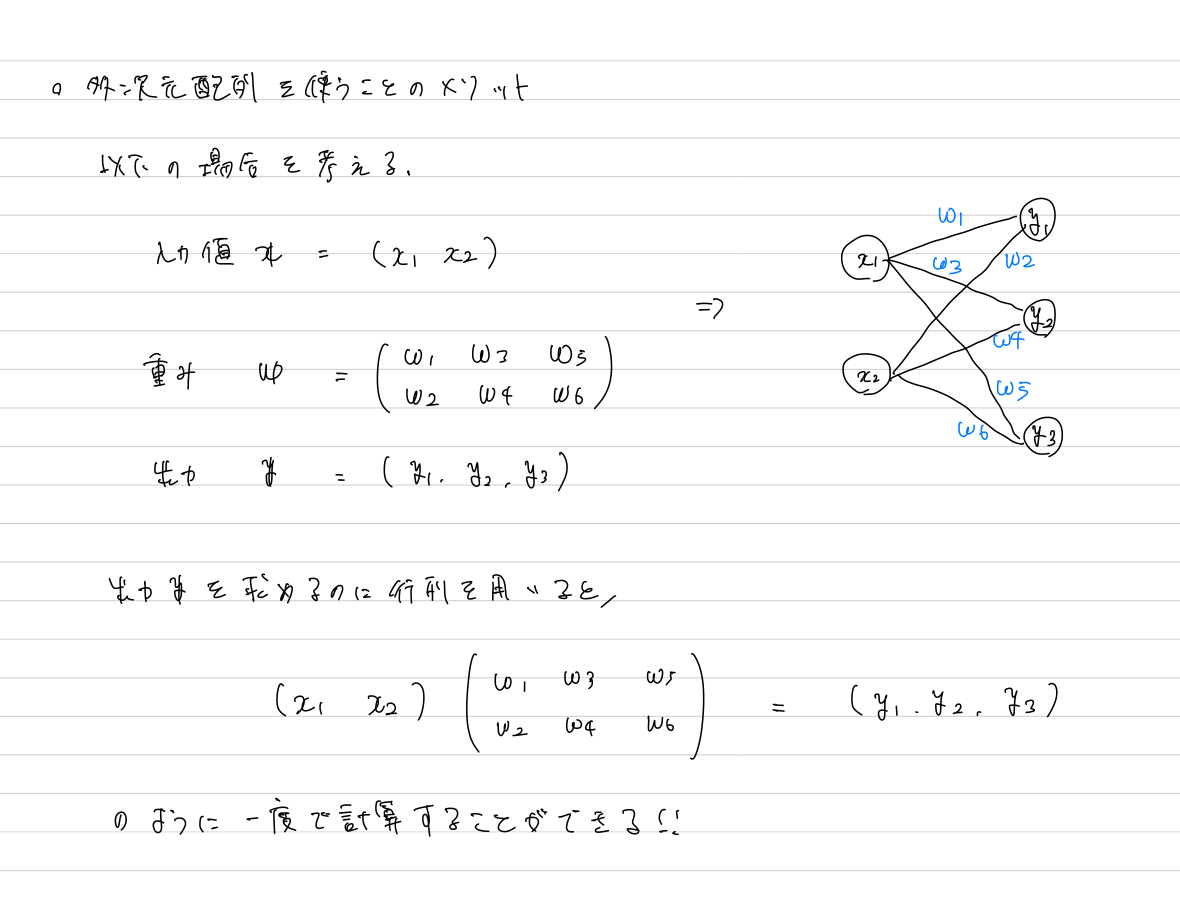 ○ 多次元配列を使うことのメリット
以下の場合を考える.
入力値 x = (x1 x2)
⇒
重み w = ( w1 w3 w5
w2 w4 w6 )
出力 y = (y1, y2, y3)
x1
x2
y1
y2
y3
w1
w3
w2
w4
w5
w6
出力 y を求めるのに行列を用いると,
(x1 x2) ( w1 w3 w5
w2 w4 w6 ) = (y1, y2, y3)
のように一度で計算することができる!!